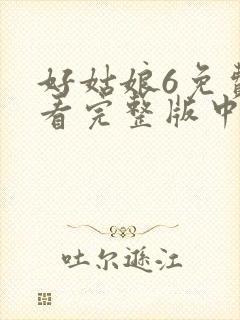 好姑娘6免费
看完整版中
吐尔逊江